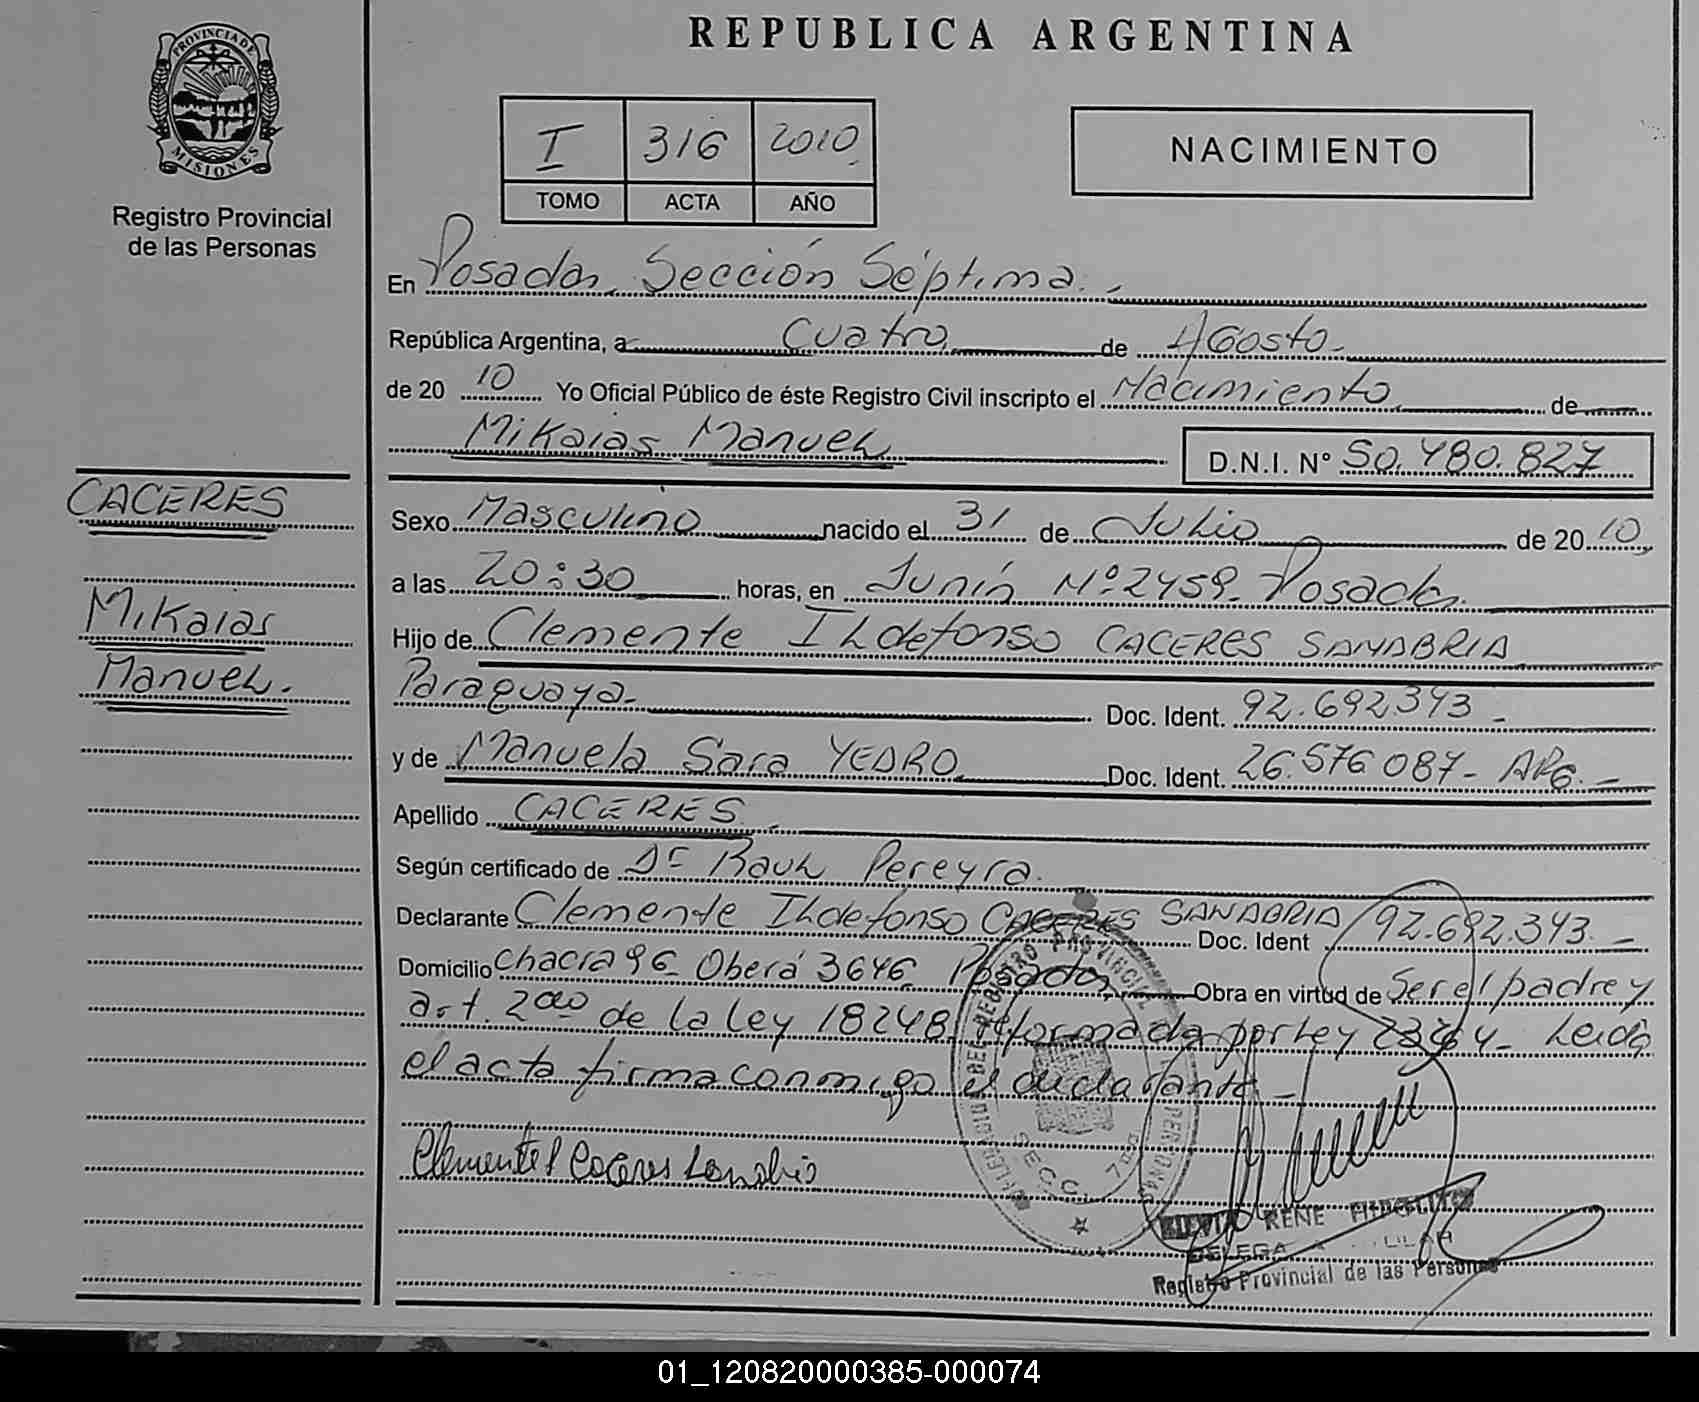 REPUBLICA ARGENTINA
PROVINCIA DE
MISIONES
Registro Provincial
de las Personas
I 316 2010
TOMO ACTA AÑO
NACIMIENTO
En Posadas, Sección Séptima.
República Argentina, a Cuatro de Agosto
de 20 10 Yo Oficial Público de éste Registro Civil inscripto el Nacimiento de
Mikaias Manuel
D.N.I. N° 50.480.827
CACERES
Mikaias
Manuel.
Sexo Masculino nacido el 31 de Julio de 20 10
a las 20:30 horas, en Junín Nº 2459 - Posadas.
Hijo de Clemente Ildefonso CACERES SANABRIA
Paraguaya. Doc. Ident. 92.692.343 -
y de Manuela Sara YEDRO Doc. Ident. 26.576.087 - ARG. -
Apellido CACERES.
Según certificado de Dr Raul Pereyra.
Declarante Clemente Ildefonso CACERES SANABRIA Doc. Ident 92.692.343. -
Domicilio Chacra 96 - Oberá 3646. Posadas, Obra en virtud de Ser el padre y
art. 2do de la ley 18248 reformada por ley - Leida
el acta firma conmigo el declarante -
Clemente I Caceres Sanabria
SECC. 7
RENE HIPOLITO
Registro Provincial de las Personas
01_120820000385-000074